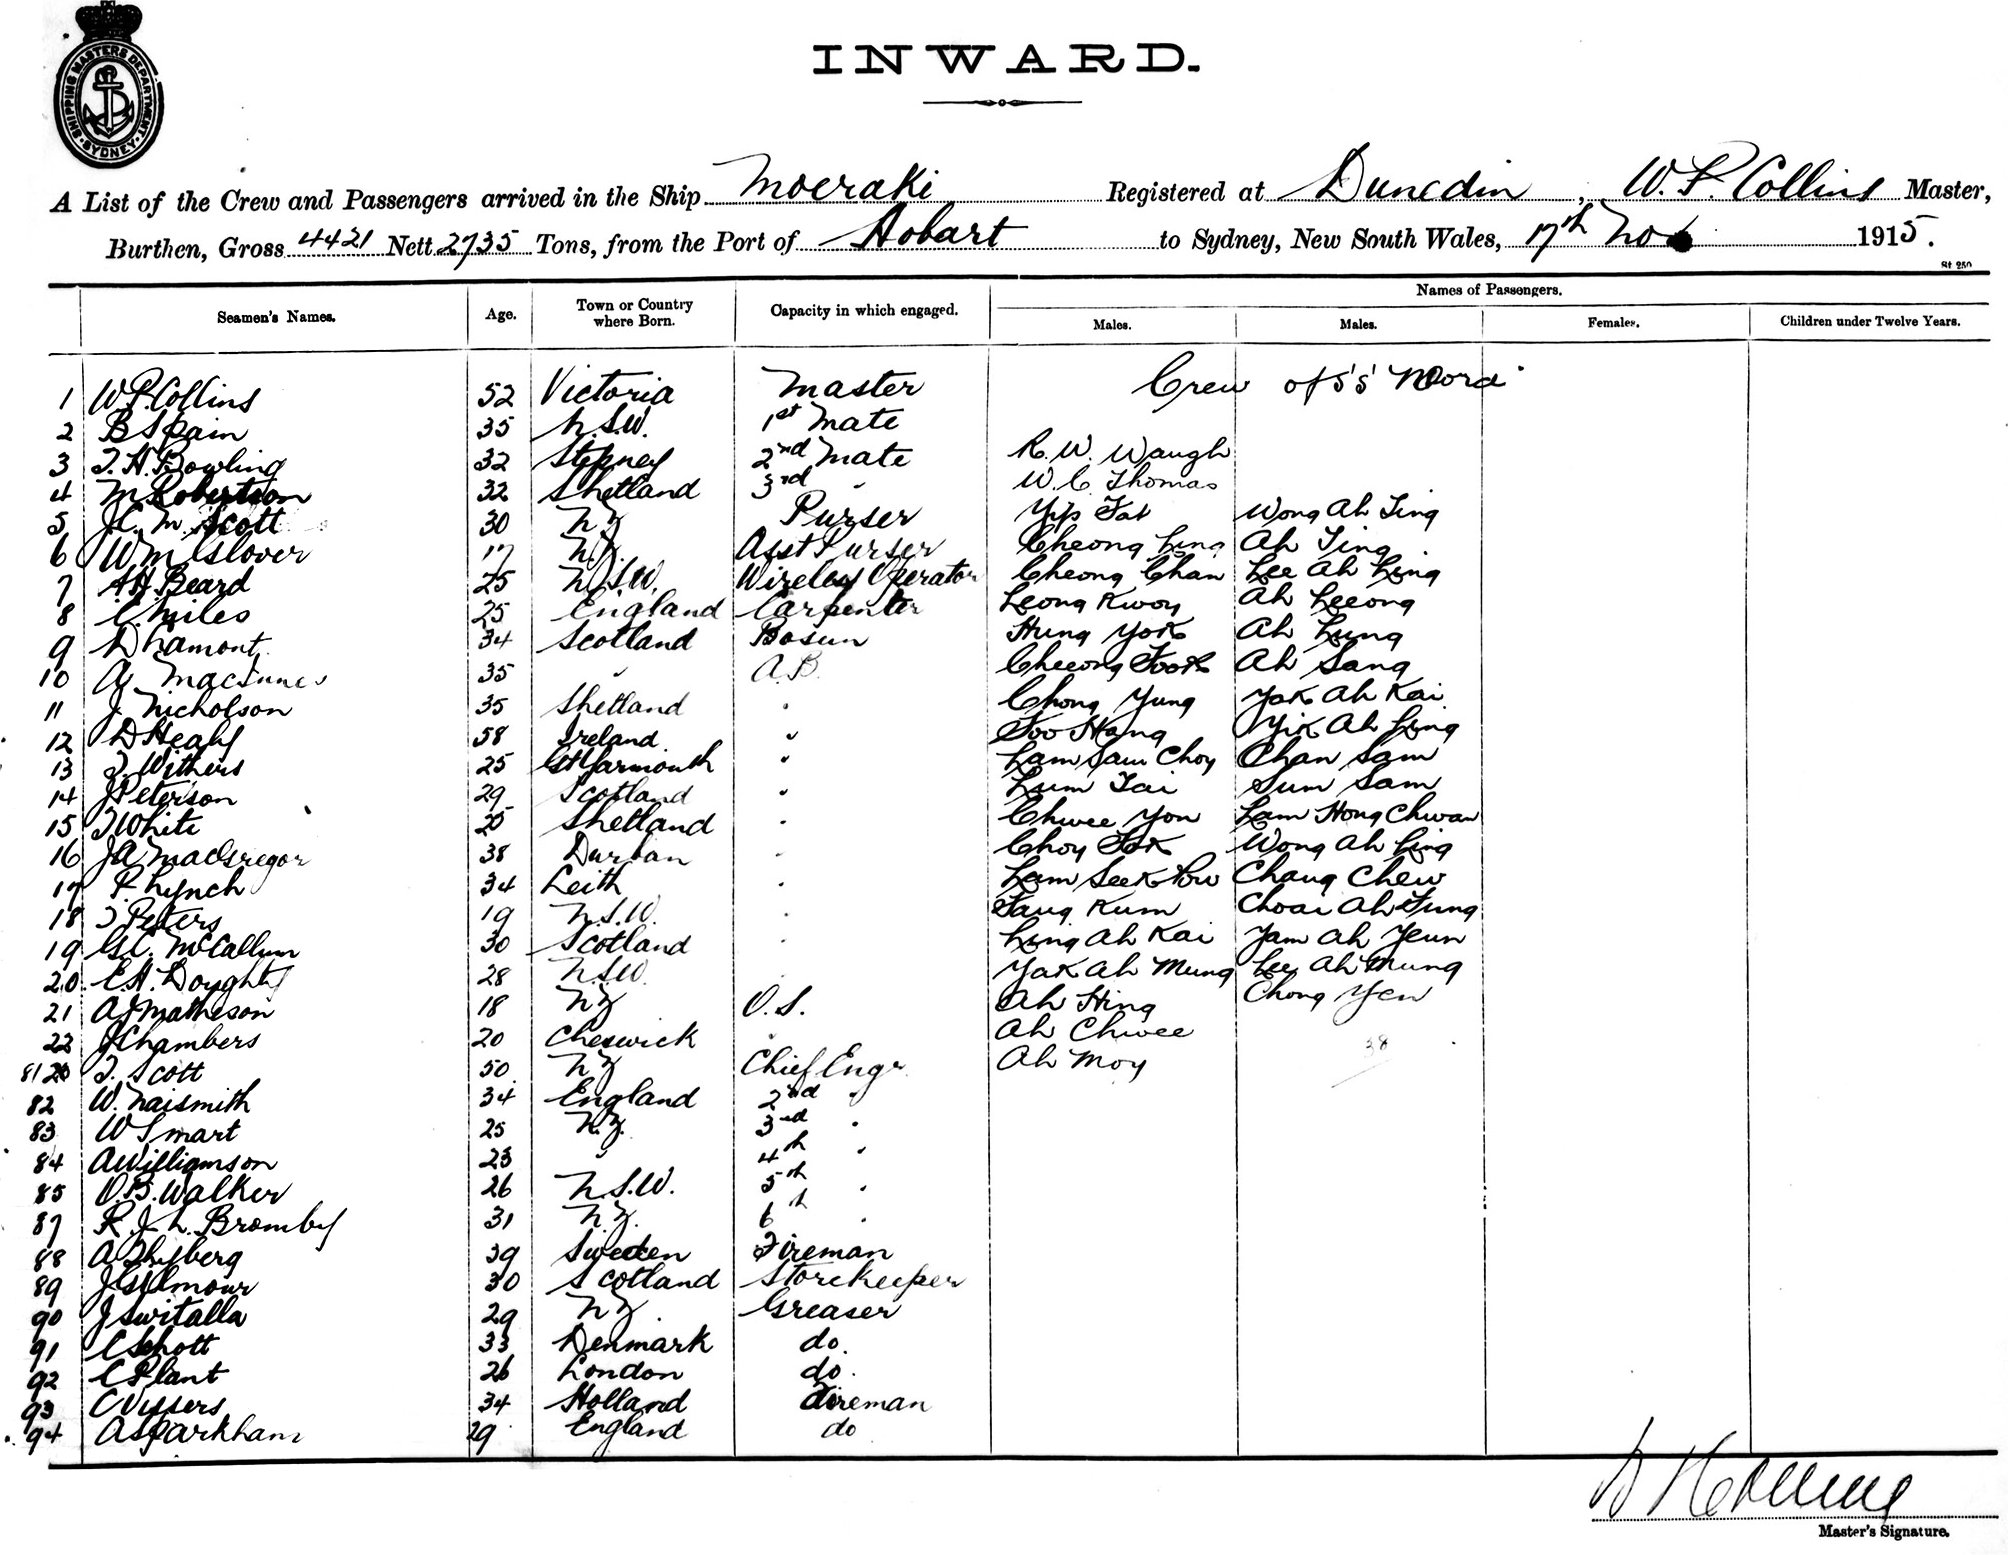 SHIPPING MASTERS DEPARTMENT
SYDNEY
INWARD.
A List of the Crew and Passengers arrived in the Ship Moeraki Registered at Dunedin, W. P. Collins Master,
Burthen, Gross 4421 Nett 2735 Tons, from the Port of Hobart to Sydney, New South Wales, 17th Nov 1915.
St 250
Seamen's Names. Age. Town or Country where Born. Capacity in which engaged. Names of Passengers.
Males. Males. Females. Children under Twelve Years.
Crew of s's'
1 W P. Collins 52 Victoria Master
2 B Spain 35 N.S.W. 1st Mate
3 T. H. Bowling 32 Stepney 2nd Mate R. W. Waugh
4 M Robertson 32 Shetland 3rd " W. C. Thomas
5 J. C. M. Scott 30 NZ Purser Yip Fat Wong Ah Ting
6 W M Glover 17 NZ Asst Purser Cheong Ling Ah Ting
7 A H. Beard 25 N.S.W. Wireless Operator Cheong Chan Lee Ah Ling
8 C Miles 25 England Carpenter Leong Kwoy Ah Leeong
9 D Lamont 34 Scotland Bosun Hung Yok Ah Lung
10 A MacInnes 35 " A.B. Cheeong Fook Ah Sang
11 J. Nicholson 35 Shetland " Chong Yung Yak Ah Kai
12 D Healy 58 Ireland " Foo Hang Yik Ah Ling
13 T. Withers 25 Gt Yarmouth " Lam Sam Choy Chan Sam
14 J Peterson 29 Scotland " Lum Tai Sum Sam
15 T White 25 Shetland " Chwee Yon Lam Hong Chwan
16 J A MacGregor 38 Durban " Choy Fok Wong Ah Ling
17 P. Lynch 34 Leith " Lam Seek Pow Chang Chew
18 T Peters 19 N.S.W. " Fang Kum Choai Ah Fung
19 G C. McCallum 30 Scotland " Ling Ah Kai Yam Ah Yeun
20 E H. Doughty 28 N.S.W. " Yak Ah Mung Lee Ah Mung
21 A J Matheson 18 NZ O.S. Ah Hing Chong Yen
22 J Chambers 20 Cheswick " Ah Chwee 38
81 T. Scott 50 NZ Chief Engr Ah Moy
82 W. Naismith 34 England 2nd "
83 W Smart 25 N.Z. 3rd "
84 A Williamson 23 " 4th "
85 O. B. Walker 26 N.S.W. 5th "
87 R. J. L. Bromby 31 N.Z. 6th "
88 A Thyberg 39 Sweden Fireman
89 J Gilmour 30 Scotland Storekeeper
90 J Switalla 29 NZ Greaser
91 C Schott 33 Denmark do.
92 C Plant 26 London do.
93 C Vissers 34 Holland Fireman
94 A Sparkham 29 England do
W P Collins
Master's Signature.